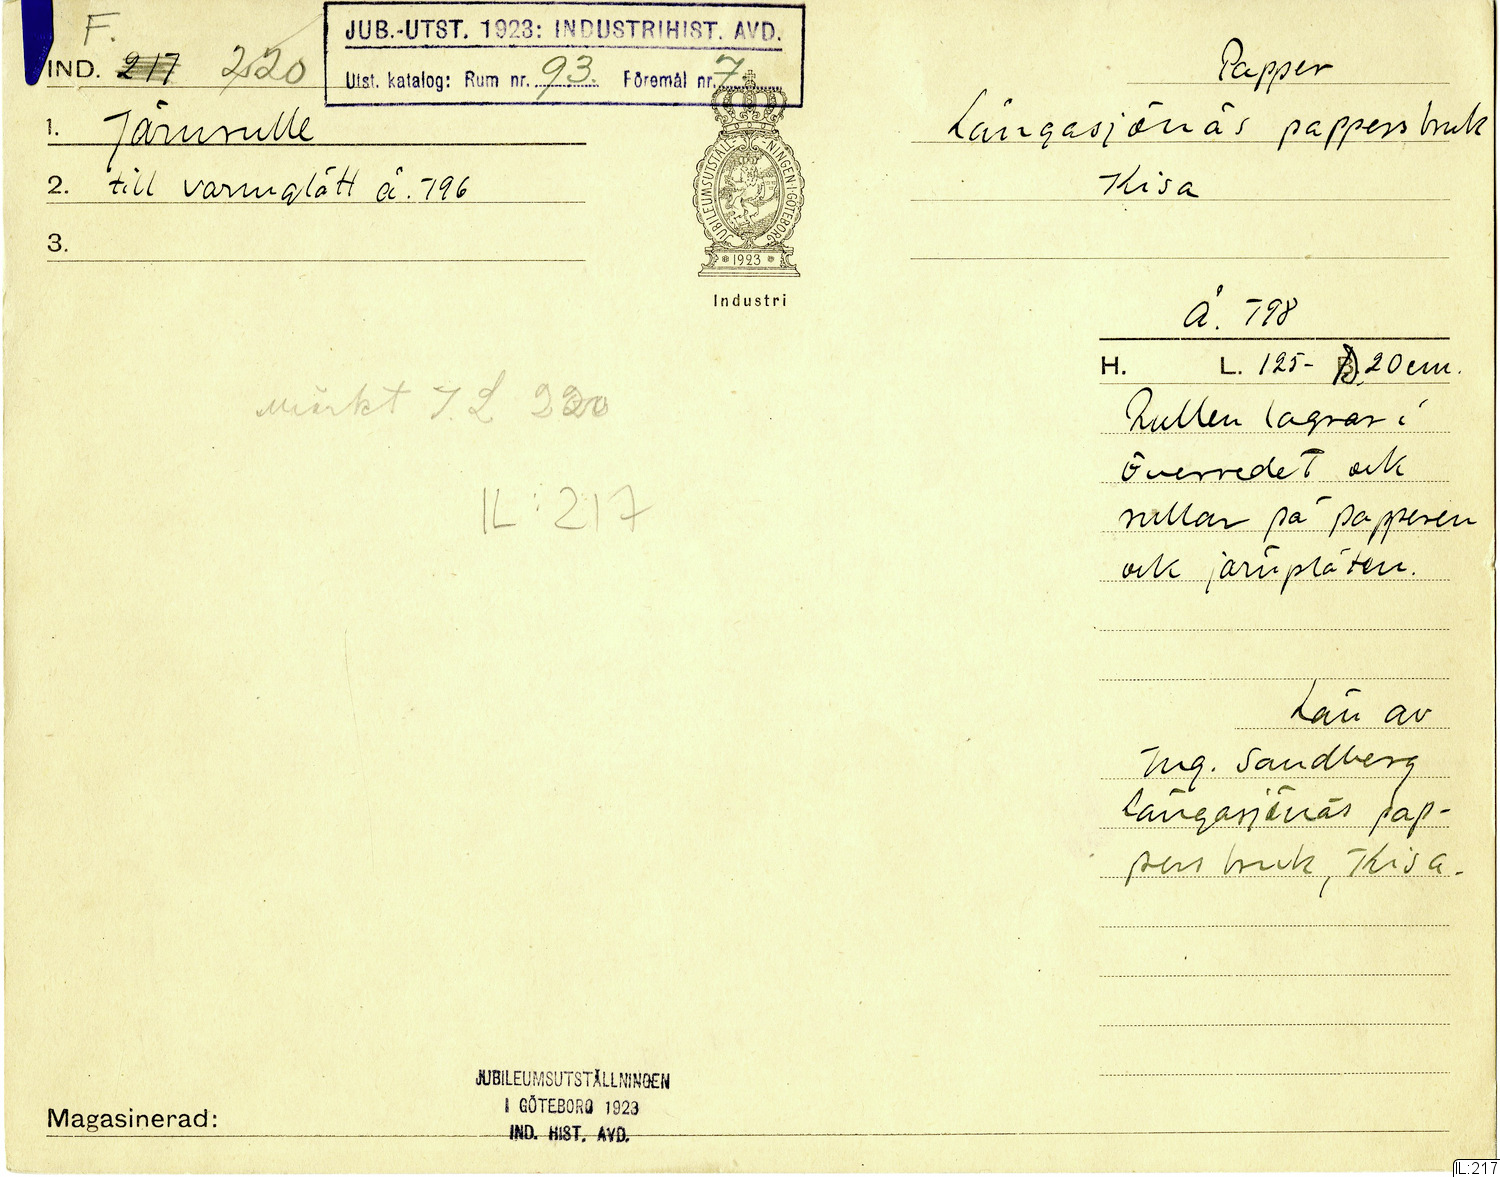 F.
IND. 217 220
JUB.-UTST. 1923: INDUSTRIHIST. AVD.
Utst. katalog: Rum nr. 93. Föremål nr. 7
1. Järnrulle
2. till varmglätt å. 796
3.
JUBILEUMSUTSTÄLLNINGEN I GÖTEBORG
1923
Industri
Papper
Långasjönäs pappersbruk
Kisa
Å. 798
H. L. 125- B. 20 cm.
Rullen lagrar i
överredet och
rullar på papperen
och järnplåten.
Märkt I.L 220
IL:217
Lån av
Ing. Sandberg
Långasjönäs pap-
persbruk, Kisa.
JUBILEUMSUTSTÄLLNINGEN
I GÖTEBORG 1923
IND. HIST. AVD.
Magasinerad:
IL:217